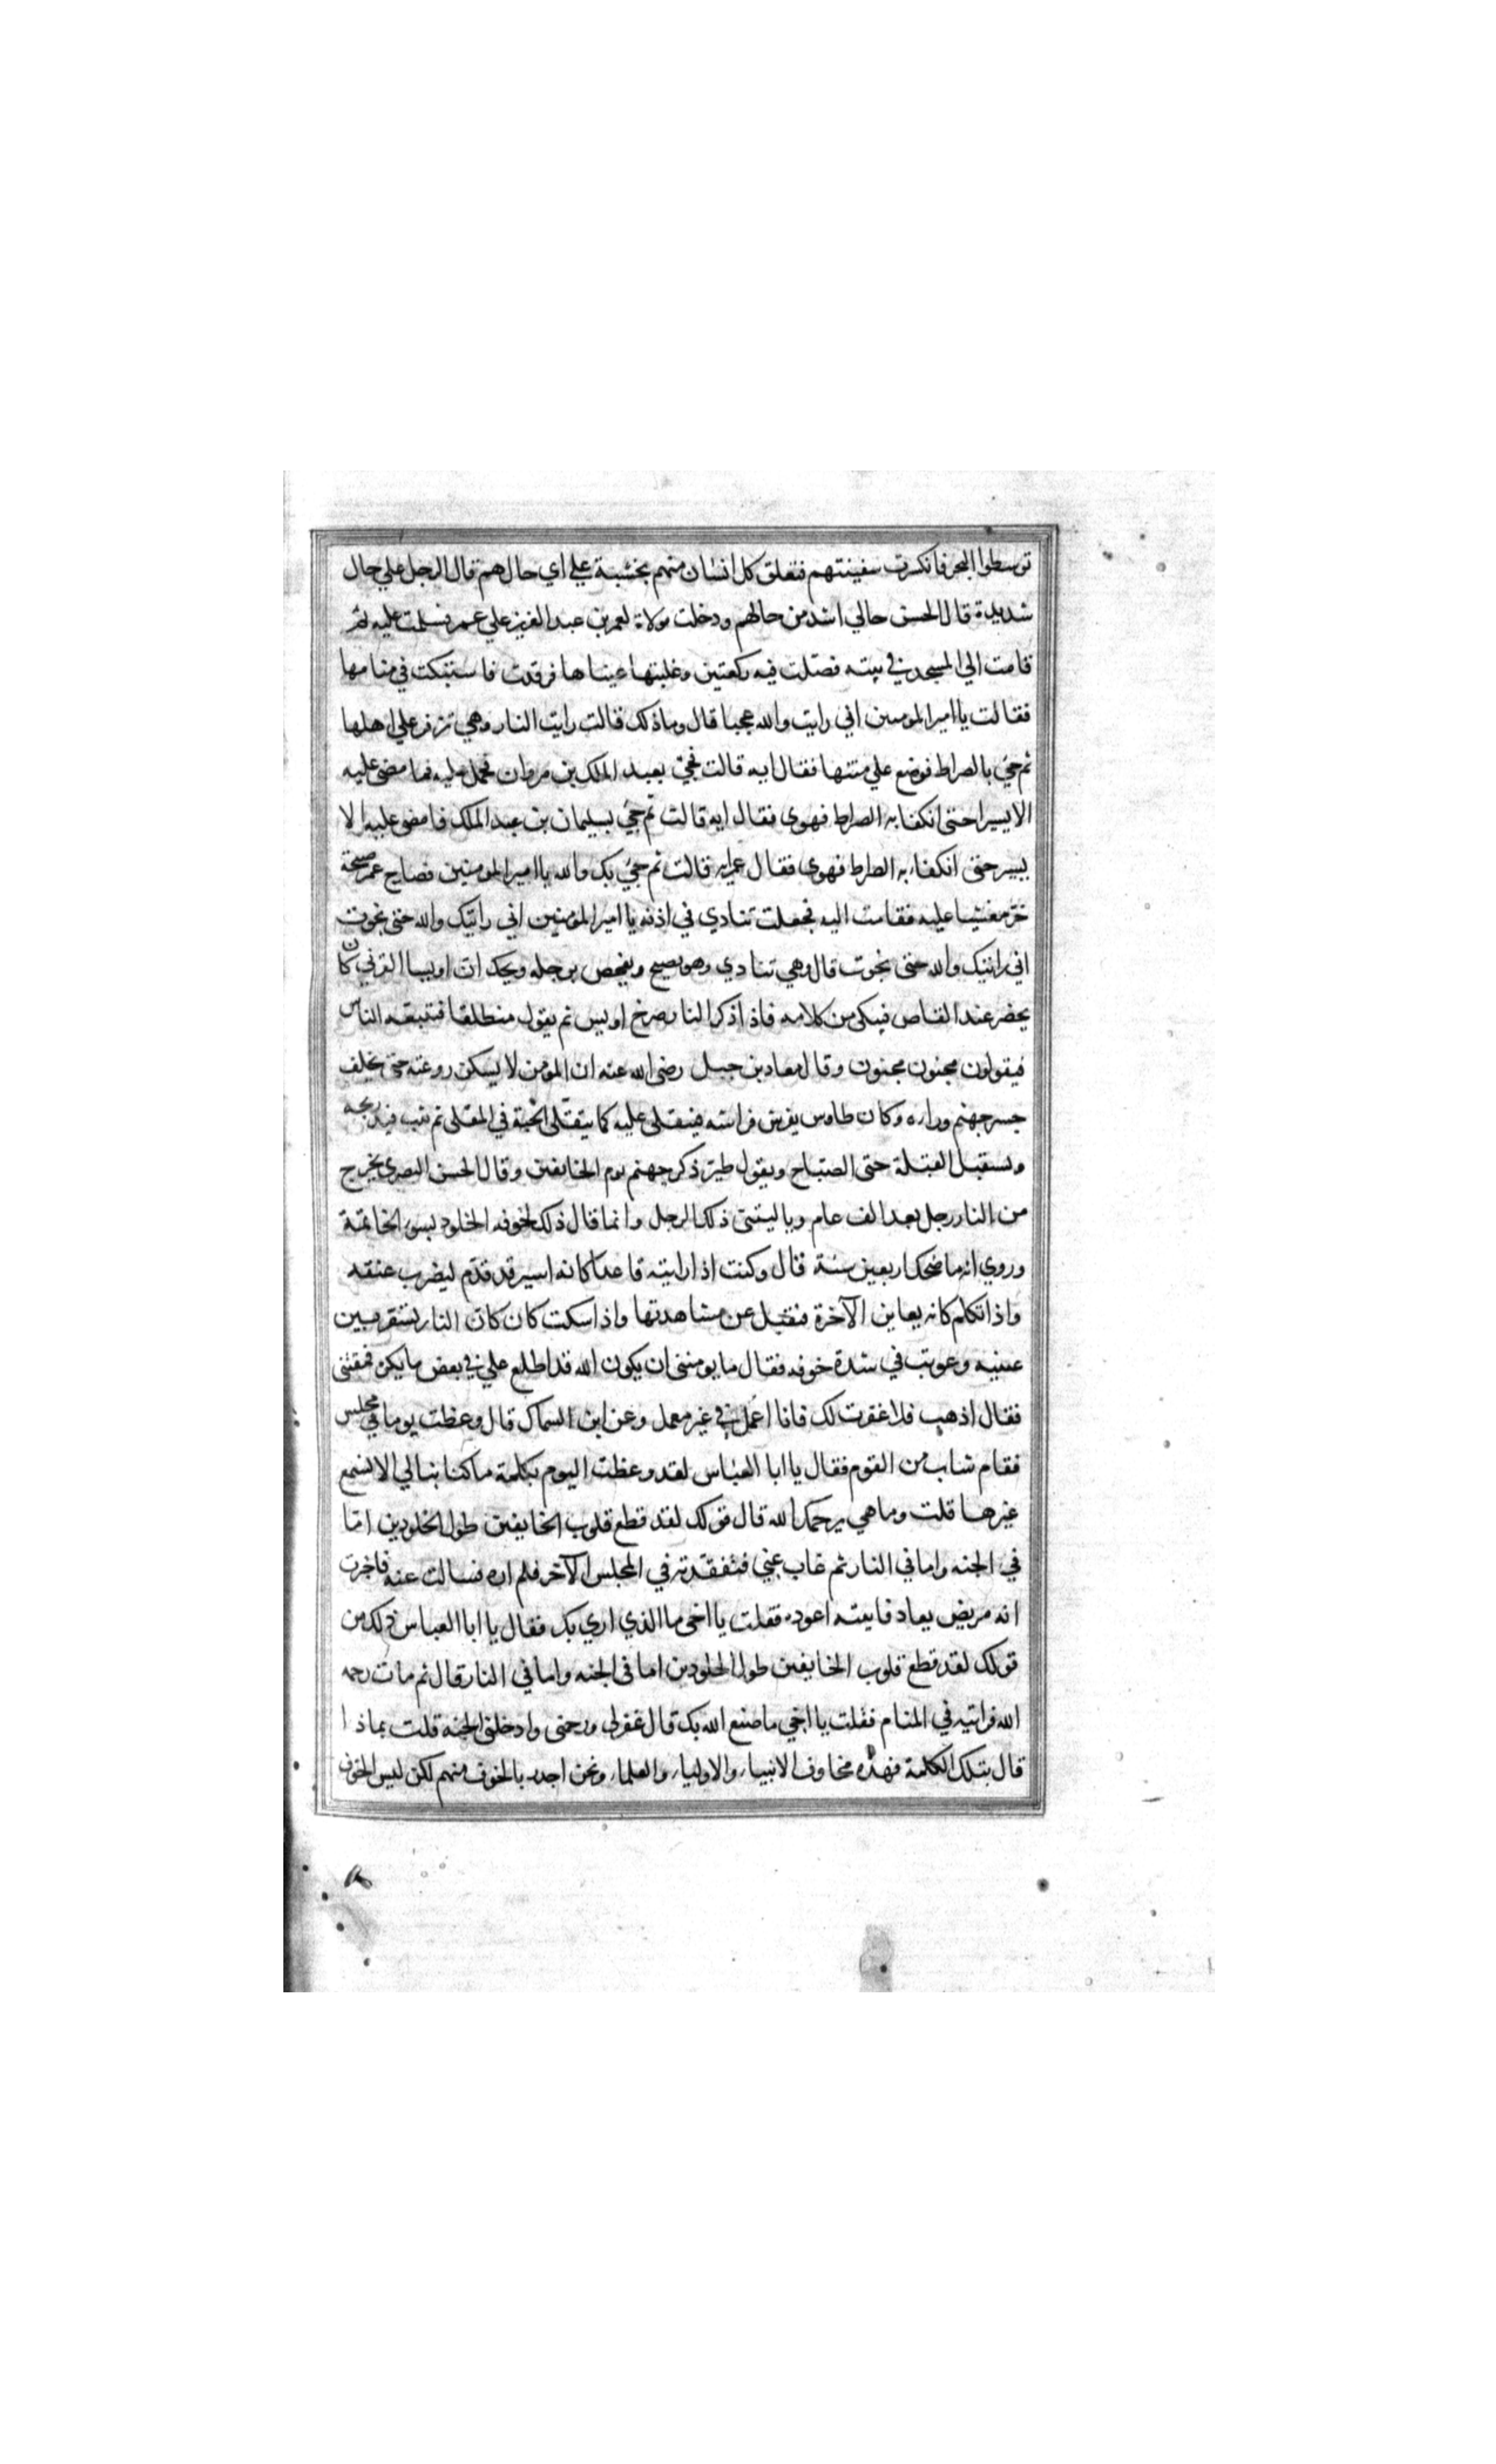 توسطوا البحر فانكسرت سفينتهم فتعلق كل انسان منهم بخشبة علي اي حال هم قال الرجل علي حال
شديدة قال الحسن حالي اشد من حالهم ودخلت مولاة لعمر بن عبد العزيز علي عمر فسلمت عليه ثم
قامت الي المسجد في بيته فصلت فيه ركعتين وغلبتها عيناها فرقدت فاستبكت في منامها
فقالت يا امير المومنين اني رايت والله عجبا قال وما ذلك قالت رايت النار وهي تزفر علي اهلها
ثم جئ بالصراط فوضع علي متنها فقال ايه قالت فجئ بعبد الملك بن مروان فحمل عليه فما مضي عليه
الا يسيرا حتى انكفا به الصراط فهوى فقال ايه قالت ثم جئ بسليمان بن عبد الملك فما مضى عليه الا
يسير حتى انكفاء به الصراط فهوي فقال عمر ايه قالت ثم جئ بك والله يا امير المومنين فصاح عمر صيحة
خر مغشيا عليه فقامت اليه فجعلت تنادي في اذنه يا امير المؤمنين اني رايتك والله حتى نجوت
اني رايتك والله حتى نجوت قال وهي تنادي وهو يصيح ويفحص برجله ويحكى ان اويسا القرني كان
يحضر عند القاص فيبكى من كلامه فاذا ذكر النار صرخ اويس ثم يقوم منطلقا فتتبعه الناس
فيقولون مجنون مجنون وقال معاذ بن جبل رضى الله عنه ان المؤمن لا يسكن روعته حتى يخلف
جسر جهنم وراره وكان طاوس يفرش فراشه فيتقلى عليه كما يتقلى الحبة في المقلى ثم يثب فيدرجه
ويستقبل القبلة حتى الصباح ويقول طير ذكر جهنم نوم الخايفين وقال الحسن البصري يخرج
من النار رجل بعد الف عام ويا ليتنى ذلك الرجل وانما قال ذلك لخوفه الخلود بسوء الخاتمة
وروي انه ما ضحك اربعين سنة قال وكنت اذا رايته قاعدا كانه اسير قد قدم ليضرب عنقه
واذا تكلم كانه يعاين الآخرة فيقبل عن مشاهدتها واذا سكت كان كان النار تستقر بين
عينيه وعوتب في شدة خوفه فقال ما يومننى ان يكون الله قد اطلع علي في بعض ما يكره فمقتنى
فقال اذهب فلا غفرت لك فانا اعمل في غير معمل وعن ابن السماك قال وعظت يوما في مجلس
فقام شاب من القوم فقال يا ابا العباس لقد وعظت اليوم بكلمة ما كنا نبالي الا نسمع
غيرها قلت وما هي يرحمك الله قال قولك لقد قطع قلوب الخايفين طول الخلودين اما
في الجنه واما في النار ثم غاب عني فتفقدته في المجلس الآخر فلم اره فسالت عنه فاخبرت
انه مريض يعاد فايته اعوده فقلت يا اخى ما الذي اري بك فقال يا ابا العباس ذلك من
قولك لقد قطع قلوب الخايفين طول الخلودين اما في الجنه واما في النار قال ثم مات رحمه
الله فرايته في المنام فقلت يا اخي ما صنع الله بك قال غفر لى ورحمنى وادخلنى الجنه قلت بماذا
قال بتلك الكلمة فهذه مخاوف الانبياء والاولياء والعلماء ونحن اجدر بالخوف منهم لكن ليس الخوف